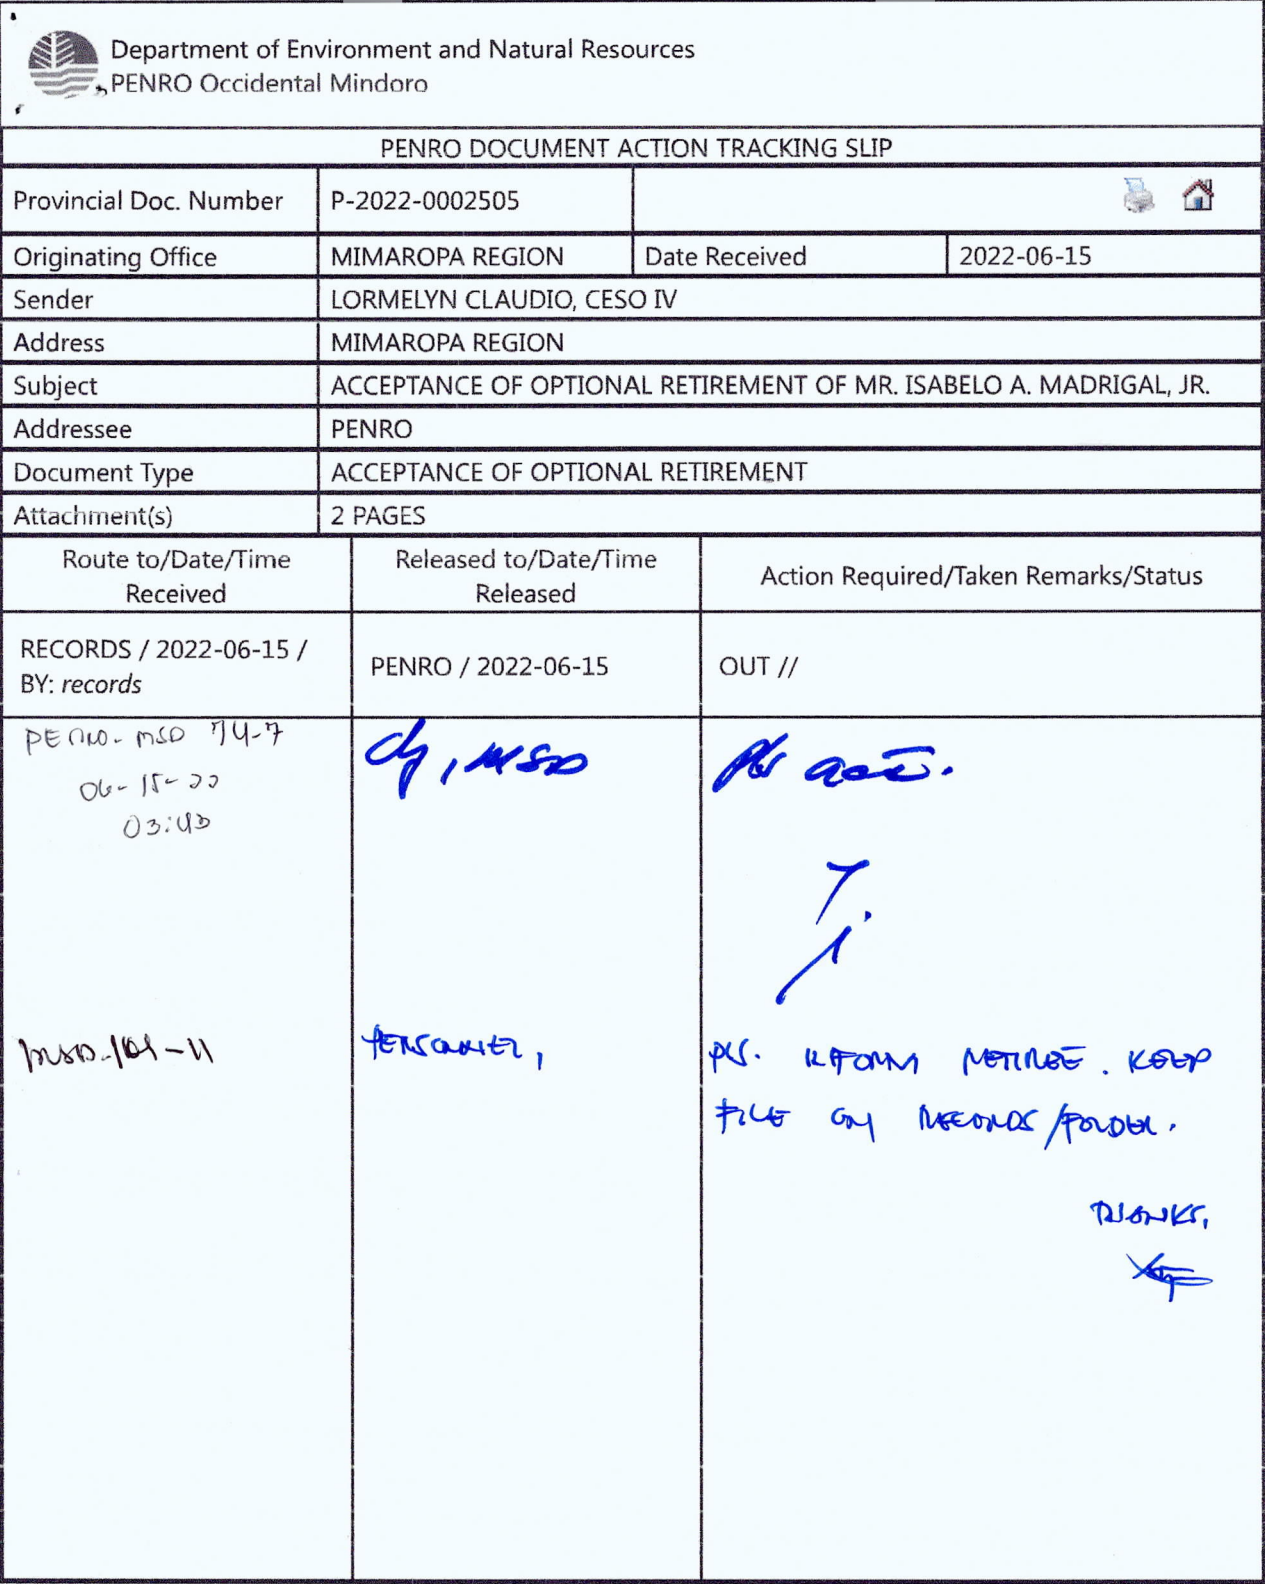 Department of Environment and Natural Resources
PENRO Occidental Mindoro
PENRO DOCUMENT ACTION TRACKING SLIP
Provincial Doc. Number P-2022-0002505
Originating Office MIMAROPA REGION Date Received 2022-06-15
Sender LORMELYN CLAUDIO, CESO IV
Address MIMAROPA REGION
Subject ACCEPTANCE OF OPTIONAL RETIREMENT OF MR. ISABELO A. MADRIGAL, JR.
Addressee PENRO
Document Type ACCEPTANCE OF OPTIONAL RETIREMENT
Attachment(s) 2 PAGES
Route to/Date/Time
Received
Released to/Date/Time
Released
Action Required/Taken Remarks/Status
RECORDS / 2022-06-15 /
BY: records
PENRO / 2022-06-15
OUT //
PENRO-MSD 74-7
06-15-22
03:43
, MSD
pls
PERSONNEL,
PLS. INFORM RETIREE. KEEP
FILE ON RECORDS/FOLDER.
THANKS,